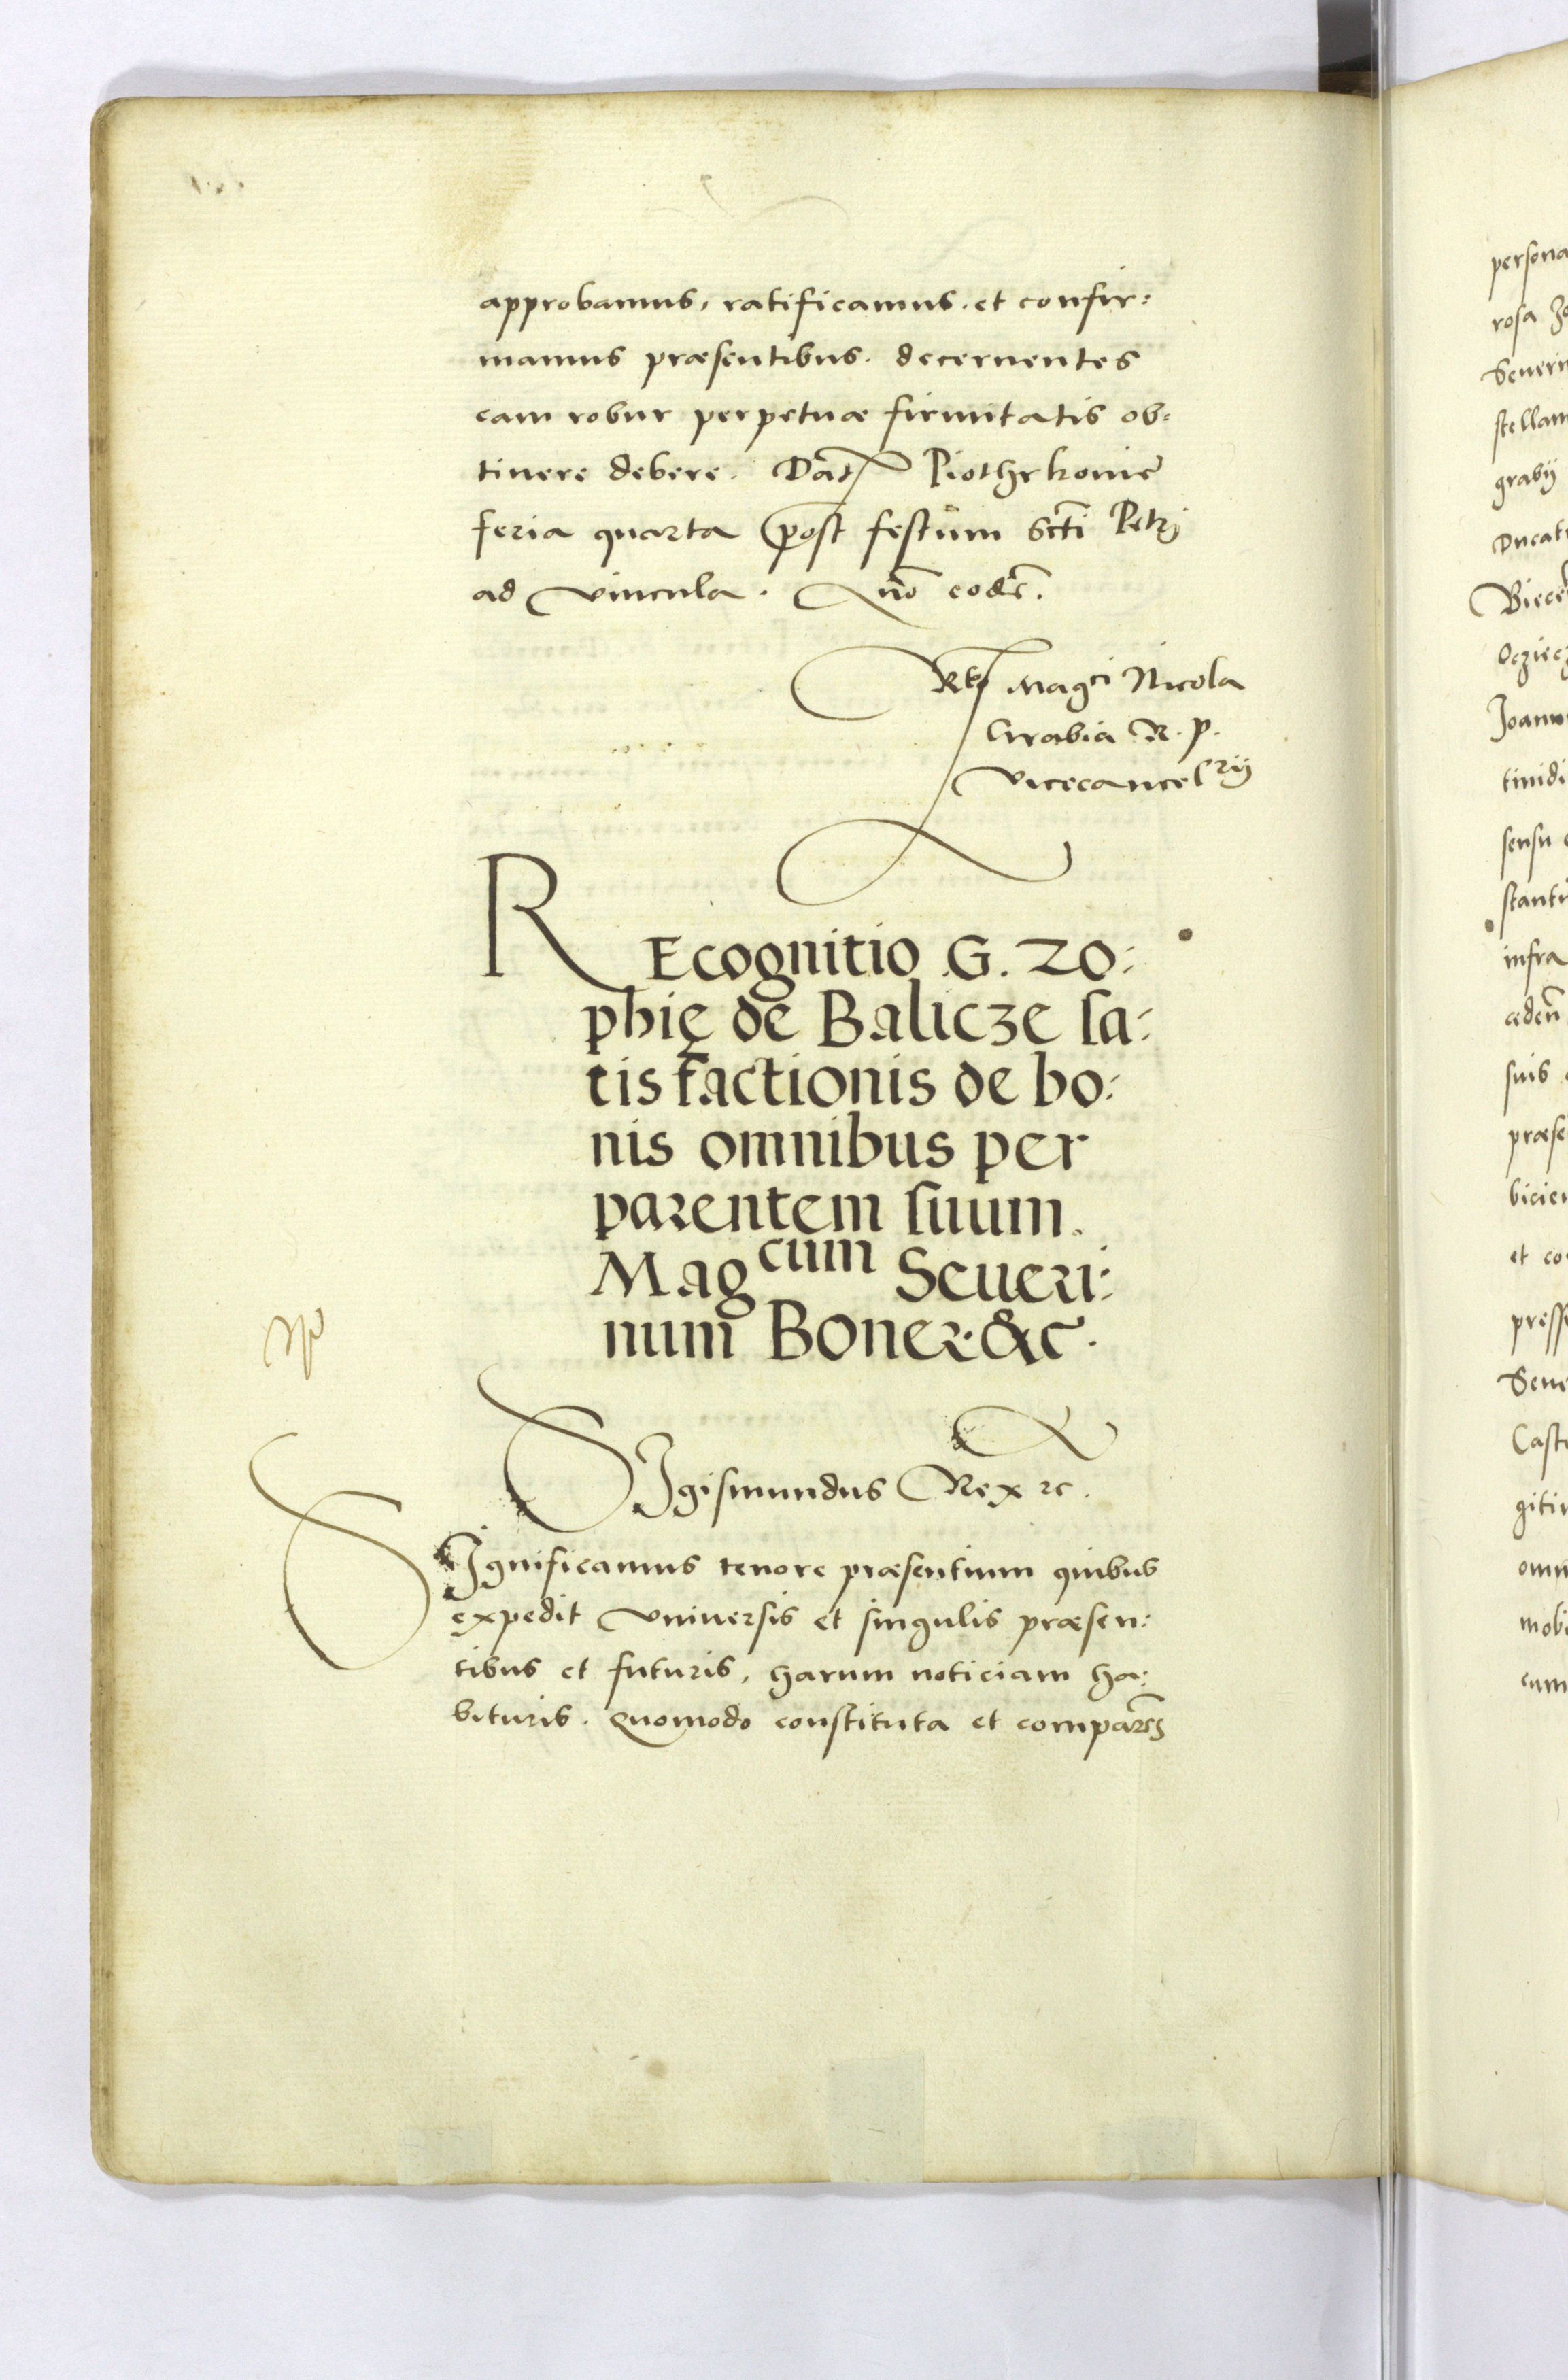 approbamus, ratificamus. et confir:
mamus præsentibus. decernentes
eam robur perpetuæ firmitatis ob:
tinere debere. Dat Piothrkoviē
feria quarta post festum Scti Petrj
ad vincula. Año eodē.
Rto Magci Nicola
Grabia R. p.
Vicecancelrij
REcognitio G. Zo:
phię de Balicze sa:
tisfactionis de bo:
nis omnibus per
parentem suum.
Magcum Seueri:
num Boner. &c.
SIgismundus Rex zc.
SIgnificamus tenore præsentium quibus
expedit Vniuersis et singulis præsen:
tibus et futuris, harum noticiam ha:
bituris. Quomodo constituta et comparēs
persona
rosa
Seueri
stellam
grabij
Ducat
Biece
Joann
tinidi
sensu
stanti
infra
ædeñ
suis
præse
bicien
et co
presse
Seue
Cast
giti
omn
mobi
cum